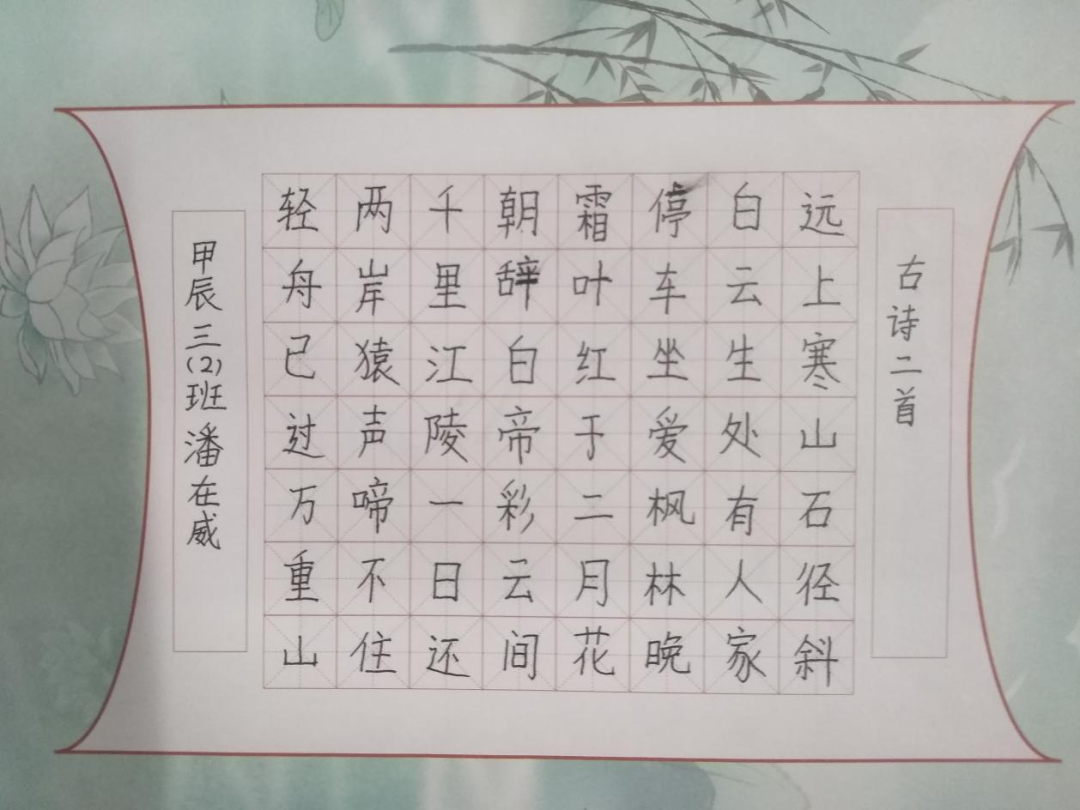 古诗二首
远上寒山石径斜
白云生处有人家
停车坐爱枫林晚
霜叶红于二月花
朝辞白帝彩云间
千里江陵一日还
两岸猿声啼不住
轻舟已过万重山
甲辰三(2)班潘在威